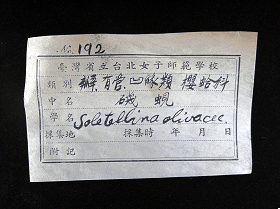 No. 192
臺灣省立台北女子師範學校
類別 瓣.有管.凹喙類 櫻蛤科
中名 磯蜆
學名 Soletellina olivacee.
採集地 採集時 年 月 日
附記